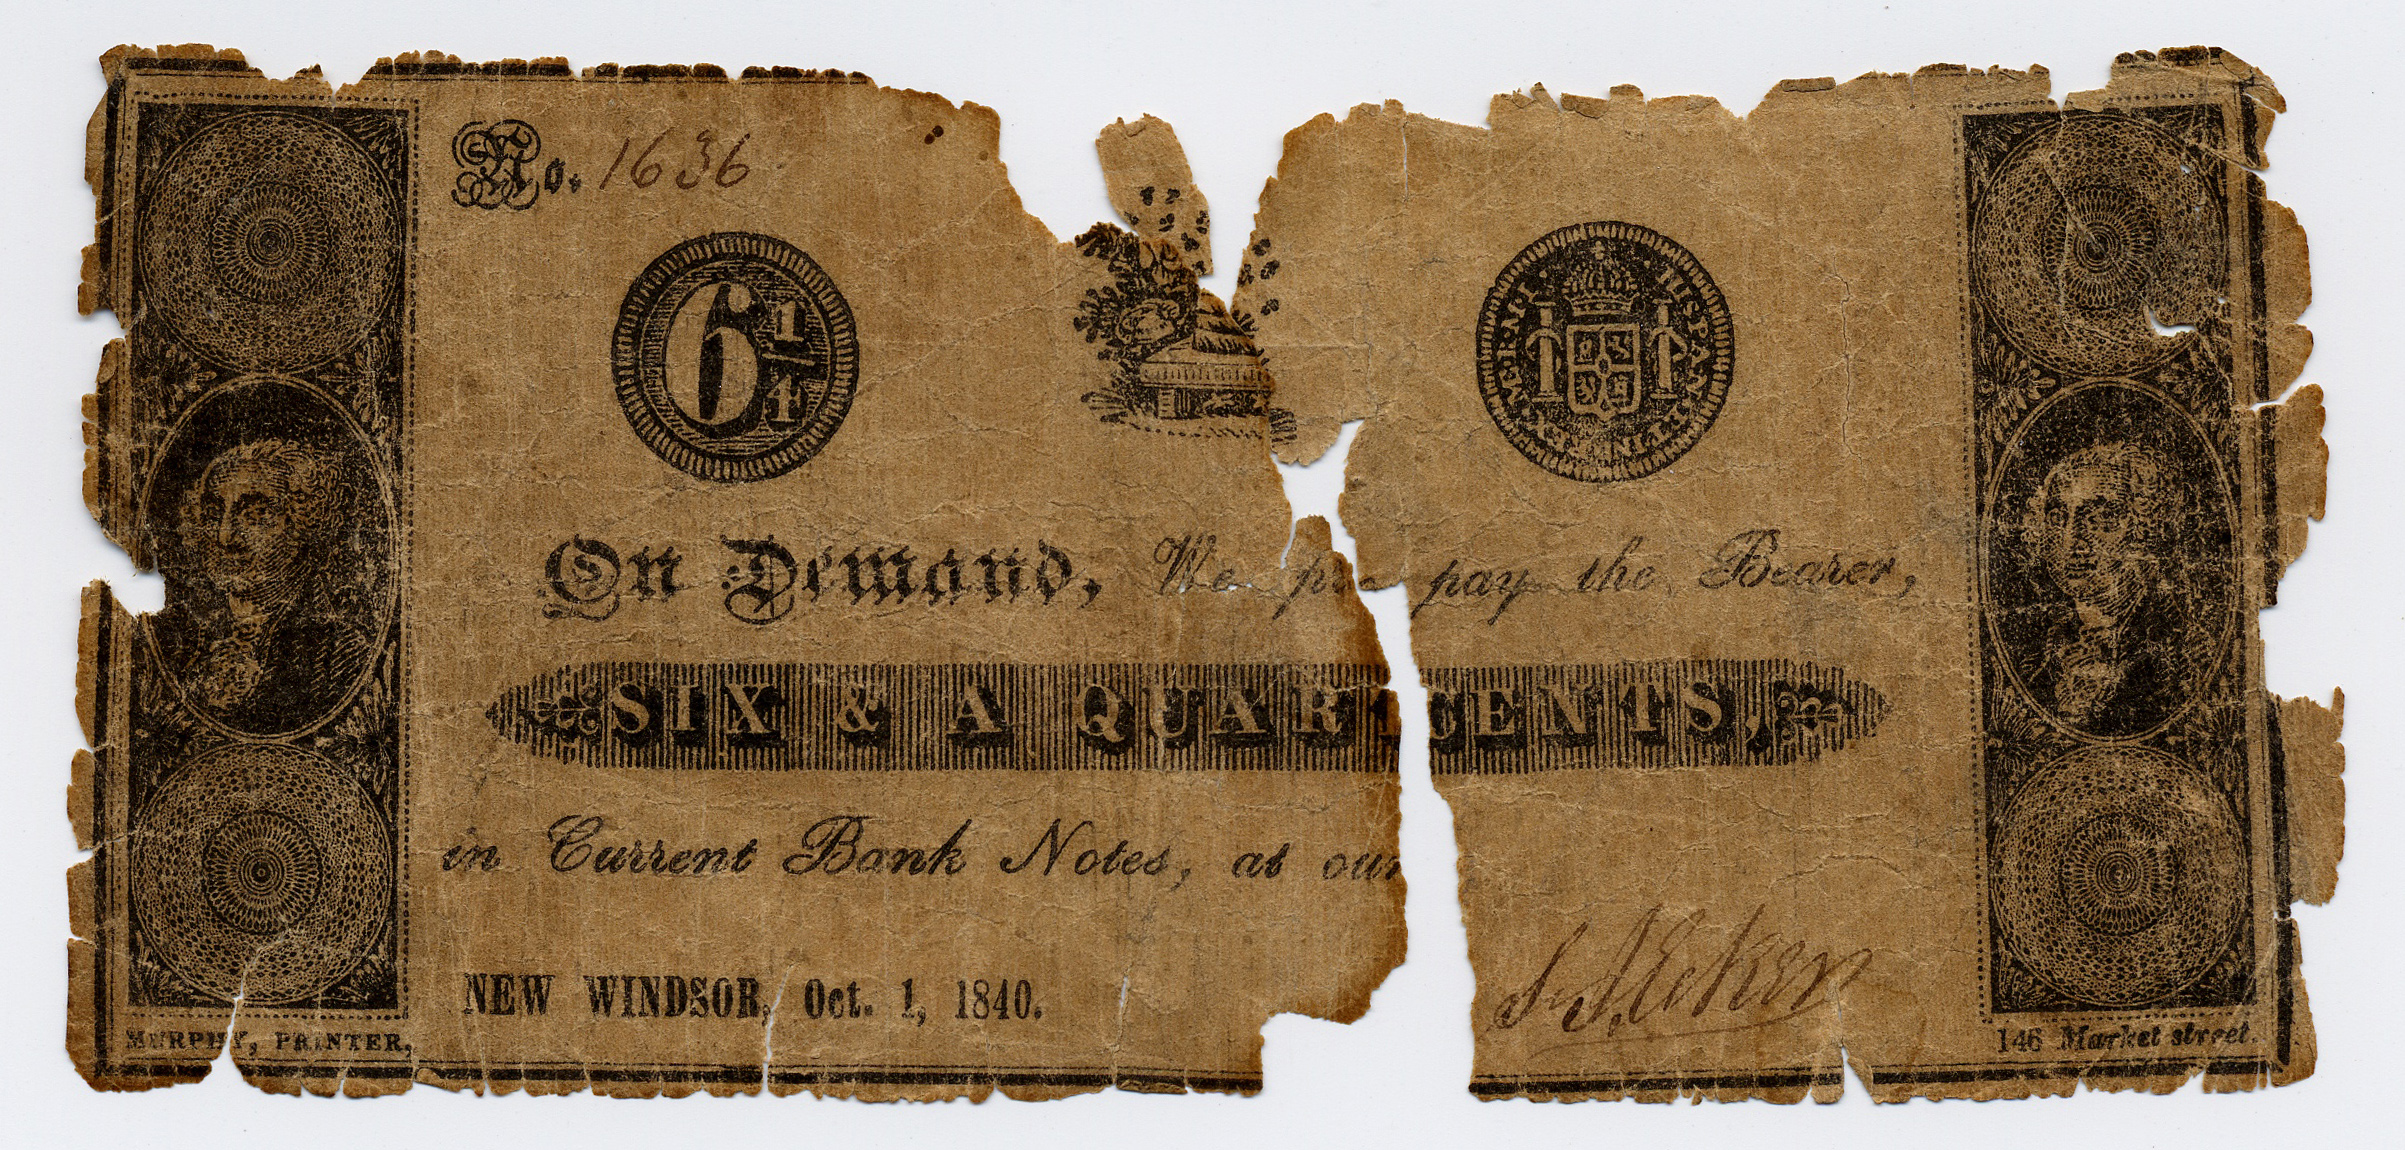 No. 1636
6 1/4
On Demand, We pay the Bearer,
SIX & A QUAR CENTS,
in Current Bank Notes, at our
NEW WINDSOR, Oct. 1, 1840.
MURPHY, PRINTER,
146 Market street.